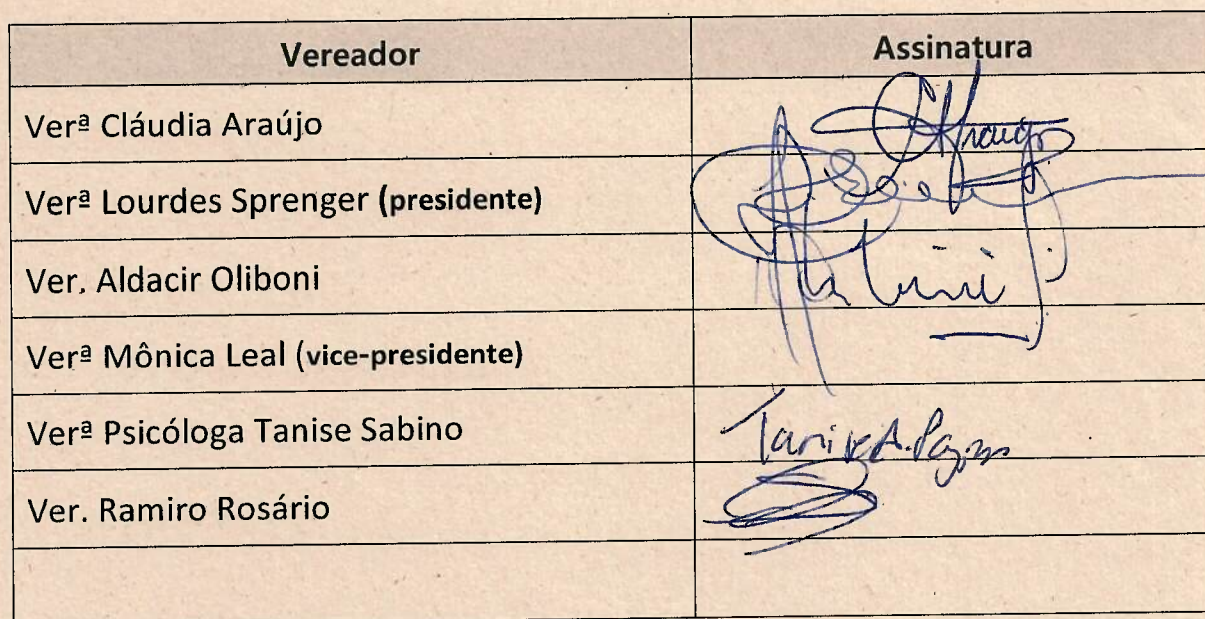 Vereador Assinatura
Verª Cláudia Araújo CAraujo
Verª Lourdes Sprenger (presidente)
Ver. Aldacir Oliboni
Verª Mônica Leal (vice-presidente)
Verª Psicóloga Tanise Sabino Tanise A.
Ver. Ramiro Rosário